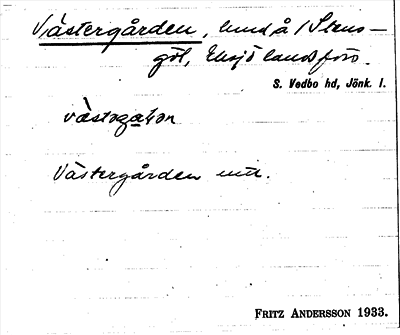 Västergården, hmd å 1 Stens-
göl, Eksjö landsförs.
S. Vedbo hd, Jönk. l.
västəga
Västergården
FRITZ ANDERSSON 1933.